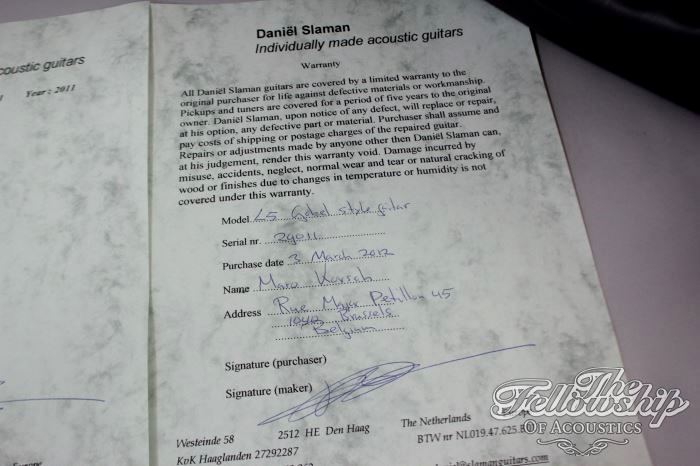 coustic guitars
Year: 2011
Daniël Slaman
Individually made acoustic guitars
Warranty
All Daniël Slaman guitars are covered by a limited warranty to the
original purchaser for life against defective materials or workmanship.
Pickups and tuners are covered for a period of five years to the original
owner. Daniël Slaman, upon notice of any defect, will replace or repair,
at his option, any defective part or material. Purchaser shall assume and
pay costs of shipping or postage charges of the repaired guitar.
Repairs or adjustments made by anyone other then Daniël Slaman can,
at his judgement, render this warranty void. Damage incurred by
misuse, accidents, neglect, normal wear and tear or natural cracking of
wood or finishes due to changes in temperature or humidity is not
covered under this warranty.
Model. L5 style guitar
Serial nr. 29011
Purchase date 3 March 2012
Name Marc
Address Rue Major Petillon 45
1040 Brussels
Belgium
Signature (purchaser)
Signature (maker)
Westeinde 58 2512 HE Den Haag The Netherlands
KvK Haaglanden 27292287 BTW nr NL019.47.625.
@slamanguitars.com
The
Fellowship
Of Acoustics